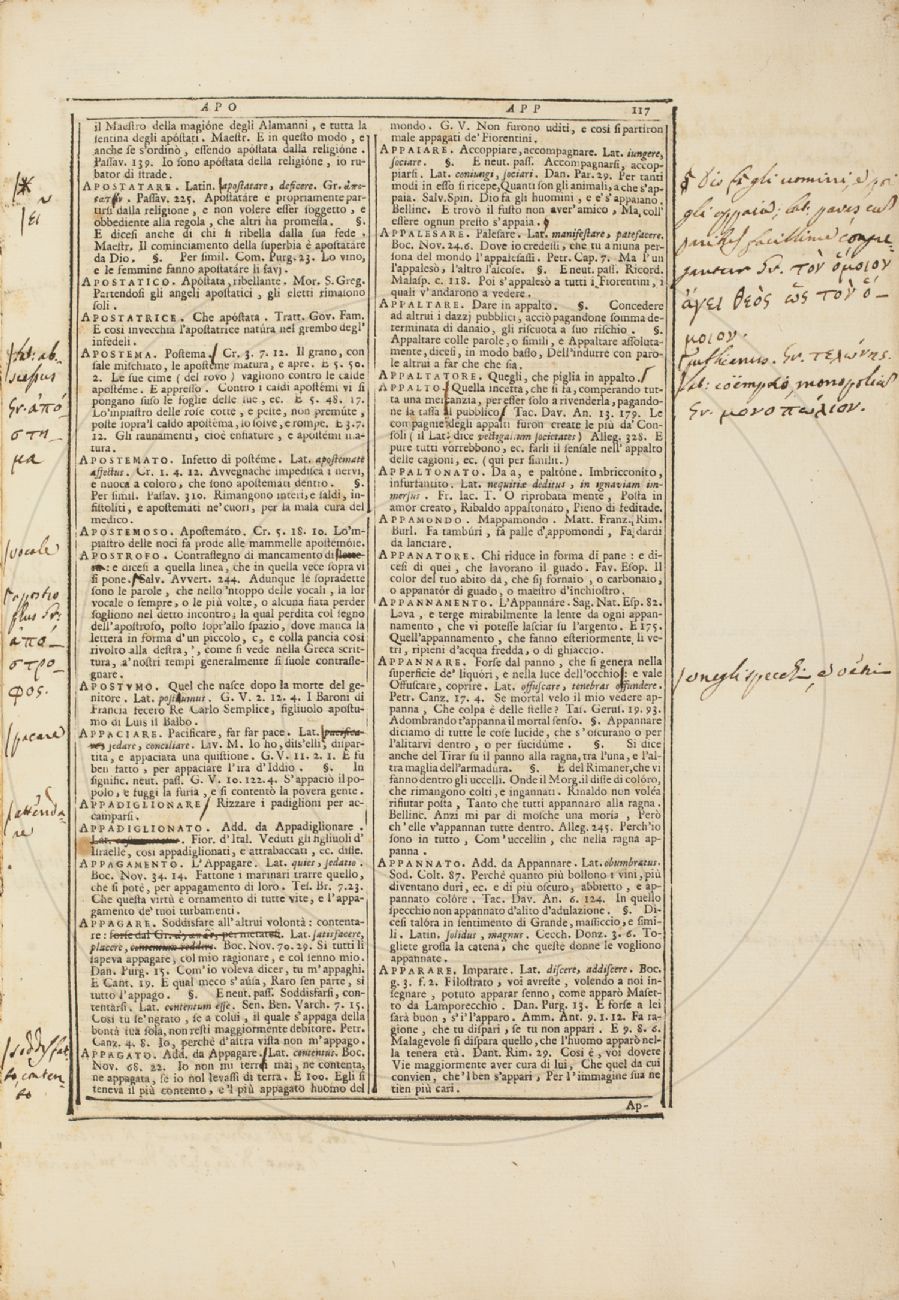 APO
APP
117
il Maestro della magióne degli Alamanni, e tutta la
sentina degli apóstati. Maestr. E in questo modo, e
anche se s'ordinò, essendo apóstata dalla religióne.
Passav. 139. Io sono apóstata della religióne, io ru-
bator di strade.
APOSTATARE. Latin. apostatare, deficere. Gr.
Passav. 225. Apostatáre è propriamente par-
tirsi dalla religione, e non volere esser soggetto, e
obbediente alla regola, che altri ha promessa. §.
E dicesi anche di chi si ribella dalla sua fede.
Maestr. Il cominciamento della superbia è apostatáre
da Dio. §. Per simil. Com. Purg. 23. Lo vino,
e le femmine fanno apostatáre li savj.
APOSTATICO. Apóstata, ribellante. Mor. S. Greg.
Partendosi gli angeli apostatici, gli eletti rimasono
soli.
APOSTATRICE. Che apóstata. Tratt. Gov. Fam.
E così invecchia l'apostatrice natúra nel grembo degl'
infedeli.
APOSTEMA. Postema. Cr. 3. 7. 12. Il grano, con
sale mischiato, le apostéme matura, e apre. E 5. 50.
2. Le sue cime (del rovo) vagliono contro le calde
apostéme. E appresso. Contro i caldi apostémi vi si
pongano suso le foglie delle sue, ec. E 5. 48. 17.
Lo'mpiastro delle rose cotte, e peste, non premúte,
poste sopra'l caldo apostéma, lo solve, e rompe. E 3. 7.
12. Gli raunamenti, cioè enfiature, e apostémi ma-
tura.
APOSTEMATO. Infetto di postéme. Lat. apostemate
affectus. Cr. 1. 4. 12. Avvegnachè impedisca i nervi,
e nuoca a coloro, che sono apostemati dentro. §.
Per simil. Passav. 310. Rimangono interi, e saldi, in-
fistoliti, e apostemati ne'cuori, per la mala cura del
medico.
APOSTEMOSO. Apostemáto. Cr. 5. 18. 10. Lo'm-
piastro delle noci fa prode alle mammelle apostemóse.
APOSTROFO. Contrassegno di mancamento di
: e dicesi a quella linea, che in quella vece sopra vi
si pone. Salv. Avvert. 244. Adunque le sopradette
sono le parole, che nello'ntoppo delle vocali, la lor
vocale o sempre, o le più volte, o alcuna fiata perder
sogliono nel detto incontro; la qual perdita col segno
dell'apostrofo, posto sopr'allo spazio, dove manca la
lettera in forma d'un piccolo, c, e colla pancia così
rivolto alla destra,', come si vede nella Greca scrit-
tura, a'nostri tempi generalmente si suole contrasse-
gnare.
APOSTVMO. Quel che nasce dopo la morte del ge-
nitore. Lat. posthumus. G. V. 2. 12. 4. I Baroni di
Francia fecero Re Carlo Semplice, figliuolo apostu-
mo di Luis il Balbo.
APPACIARE. Pacificare, far far pace. Lat.
sedare, conciliare. Liv. M. Io ho, diss'elli, dispar-
tita, e appaciata una quistione. G. V. 11. 2. 1. E fu
ben fatto, per appaciare l'ira d'Iddio. §. In
signific. neut. pass. G. V. 10. 122. 4. S'appaciò il po-
polo, e fuggì la furia, e si contentò la povera gente.
APPADIGLIONARE. Rizzare i padiglioni per ac-
camparsi.
APPADIGLIONATO. Add. da Appadiglionare.
Fior. d'Ital. Veduti gli figliuoli d'
Israelle, così appadiglionati, e attrabaccati, ec. disse.
APPAGAMENTO. L'Appagare. Lat. quies, sedatio.
Boc. Nov. 34. 14. Fattone i marinari trarre quello,
che si potè, per appagamento di loro. Tes. Br. 7. 23.
Che questa virtù è ornamento di tutte vite, e l'appa-
gamento de' tuoi turbamenti.
APPAGARE. Soddisfare all'altrui volontà: contenta-
re: Lat. satisfacere,
placere, contentum reddere. Boc. Nov. 70. 29. Si tutti li
sapeva appagare, col mio ragionare, e col senno mio.
Dan. Purg. 15. Com'io voleva dicer, tu m'appaghi.
E Cant. 19. E qual meco s'aúsa, Raro sen parte, sì
tutto l'appago. §. E neut. pass. Soddisfarsi, con-
tentarsi. Lat. contentum esse. Sen. Ben. Varch. 7. 15.
Così tu se'ngrato, se a colui, il quale s'appaga della
bontà tua sola, non resti maggiormente debitore. Petr.
Canz. 4. 8. Io, perchè d'altra vista non m'appago.
APPAGATO. Add. da Appagare. Lat. contentus. Boc.
Nov. 68. 22. Io non mi terrei mai, nè contenta,
nè appagata, se io nol levassi di terra. E 100. Egli si
teneva il più contento, e'l più appagato huomo del
mondo. G. V. Non furono uditi, e così si partiron
male appagati de' Fiorentini.
APPAIARE. Accoppiare, accompagnare. Lat. iungere,
sociare. §. E neut. pass. Accompagnarsi, accop-
piarsi. Lat. coniungi, sociari. Dan. Par. 29. Per tanti
modi in esso si ricepe, Quanti son gli animali, a che s'ap-
paia. Salv. Spin. Dio fa gli huomini, e e's'appaiano.
Bellinc. E trovò il fusto non aver'amico, Ma, coll'
essère ognun presto s'appaia.
APPALESARE. Palesare. Lat. manifestare, patefacere.
Boc. Nov. 24. 6. Dove io credessi, che tu a niuna per-
sona del mondo l'appalesassi. Petr. Cap. 7. Ma l'un
l'appalesò, l'altro l'ascose. §. E neut. pass. Ricord.
Malasp. c. 118. Poi s'appalesò a tutti i Fiorentini, i
quali v'andarono a vedere.
APPALTARE. Dare in appalto. §. Concedere
ad altrui i dazzj pubblici, acciò pagandone somma de-
terminata di danaio, gli riscuota a suo rischio. §.
Appaltare colle parole, o simili, e Appaltare assoluta-
mente, dicesi, in modo basso, Dell'indurre con paro-
le altrui a far che che sia.
APPALTATORE. Quegli, che piglia in appalto.
APPALTO. Quella incetta, che si fa, comperando tut-
ta una mercanzia, per esser solo a rivenderla, pagando-
ne la tassa al pubblico. Tac. Dav. An. 13. 179. Le
compagnie degli appalti furon create le più da'Con-
soli (il Lat. dice vectigalium societates) Alleg. 328. E
pure tutti vorrebbono, ec. farsi il sensale nell'appalto
delle cagioni, ec. (qui per similit.)
APPALTONATO. Da a, e paltóne. Imbricconito,
infurfantito. Lat. nequitiæ deditus, in ignaviam im-
mersus. Fr. Iac. T. O riprobata mente, Posta in
amor creato, Ribaldo appaltonáto, Pieno di feditade.
APPAMONDO. Mappamondo. Matt. Franz. Rim.
Burl. Fa tambúri, fa palle d'appomondi, Fa dardi
da lanciare.
APPANATORE. Chi riduce in forma di pane: e di-
cesi di quei, che lavorano il guado. Fav. Esop. Il
color del tuo abito dà, che sij fornaio, o carbonaio,
o appanatór di guado, o maestro d'inchiostro.
APPANNAMENTO. L'Appannáre. Sag. Nat. Esp. 82.
Lava, e terge mirabilmente la lente da ogni appan-
namento, che vi potesse lasciar su l'argento. E 175.
Quell'appannamento, che fanno esteriormente li ve-
tri, ripieni d'acqua fredda, o di ghiaccio.
APPANNARE. Forse dal panno, che si genera nella
superficie de' liquóri, e nella luce dell'occhio: e vale
Offuscare, coprire. Lat. offuscare, tenebras offundere.
Petr. Canz. 17. 4. Se mortal velo il mio vedere ap-
panna, Che colpa è delle stelle? Tas. Gerus. 19. 93.
Adombrando t'appanna il mortal senso. §. Appannare
diciamo di tutte le cose lucide, che s'oscurano o per
l'alitarvi dentro, o per sucidúme. §. Si dice
anche del Tirar su il panno alla ragna, tra l'una, e l'al-
tra maglia dell'armadúra. §. E del Rimaner, che vi
fanno dentro gli uccelli. Onde il Morg. il disse di colóro,
che rimangono colti, e ingannati. Rinaldo non voléa
rifiutar posta, Tanto che tutti appannaro alla ragna.
Bellinc. Anzi mi par di mosche una moría, Però
ch'elle v'appannan tutte dentro. Alleg. 245. Perch'io
sono in tutto, Com'uccellin, che nella ragna ap-
panna.
APPANNATO. Add. da Appannare. Lat. obumbratus.
Sod. Colt. 87. Perchè quanto più bollono i vini, più
diventano duri, ec. e di più oscuro, abbietto, e ap-
pannato colóre. Tac. Dav. An. 6. 124. In quello
specchio non appannato d'alito d'adulazione. §. Di-
cesi talóra in sentimento di Grande, massiccio, e simi-
li. Latin. solidus, magnus. Cecch. Donz. 3. 6. To-
gliete grossa la catena, che queste donne le vogliono
appannate.
APPARARE. Imparare. Lat. discere, addiscere. Boc.
g. 3. f. 2. Filostrato, voi avreste, volendo a noi in-
segnare, potuto apparar senno, come apparò Maset-
to da Lamporecchio. Dan. Purg. 13. E forse a lei
sarà buon, s'i'l'apparo. Amm. Ant. 9. 1. 12. Fa ra-
gione, che tu dispari, se tu non appari. E 9. 8. 6.
Malagevole si dispara quello, che l'huomo apparò nel-
la tenera età. Dant. Rim. 29. Così è, voi dovere
Vie maggiormente aver cura di lui, Che quel da cui
convien, che'l ben s'appari, Per l'immagine sua ne
tien più cari.
Ap-
lat: ab-
scessus
Gr. ἀπό-
στη-
μα
vocale
apostro
phus Gr.
ἀπό-
στρο-
φος.
pacare
attenda-
re
soddisfat
to, conten-
to
Dio fa gli uomini, e poi
gli appaia; lat. pares cum
paribus facillime congre-
gantur Gr. τὸν ὅμοιον
ἄγει θεὸς ὡς τὸν ὅ-
μοιον.
Publicanus. Gr. τελώνης.
lat: coëmptio, monopolium
Gr. μονοπώλιον.
o negli specchi, e